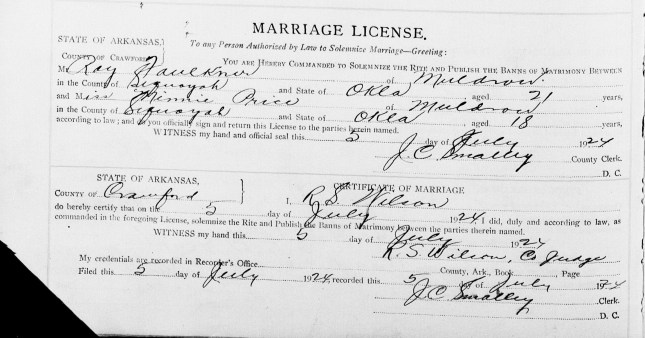 MARRIAGE LICENSE.
STATE OF ARKANSAS,
To any Person Authorized by Law to Solemnize Marriage—Greeting:
COUNTY OF CRAWFORD
YOU ARE HEREBY COMMANDED TO SOLEMNIZE THE RITE AND PUBLISH THE BANNS OF MATRIMONY BETWEEN
Mr. Ray Faulkner of Muldrow
in the County of Sequoyah and State of Okla aged 21 years,
and Miss Minnie Price of Muldrow
in the County of Sequoyah and State of Okla, aged 18 years,
according to law; and do you officially sign and return this License to the parties herein named.
WITNESS my hand and official seal this 5 day of July 1924
J. C. Smalley County Clerk.
D. C.
STATE OF ARKANSAS,
CERTIFICATE OF MARRIAGE
COUNTY OF Crawford I, R. S. Wilson
do hereby certify that on the 5 day of July 1924 I did, duly and according to law, as
commanded in the foregoing License, solemnize the Rite and Publish the Banns of Matrimony between the parties therein named.
WITNESS my hand this 5 day of July 1924
R. S. Wilson, Co Judge
My credentials are recorded in Recorder's Office. County, Ark., Book Page
Filed this 5 day of July 1924, recorded this 5 day of July 1924
J C Smalley Clerk.
D. C.